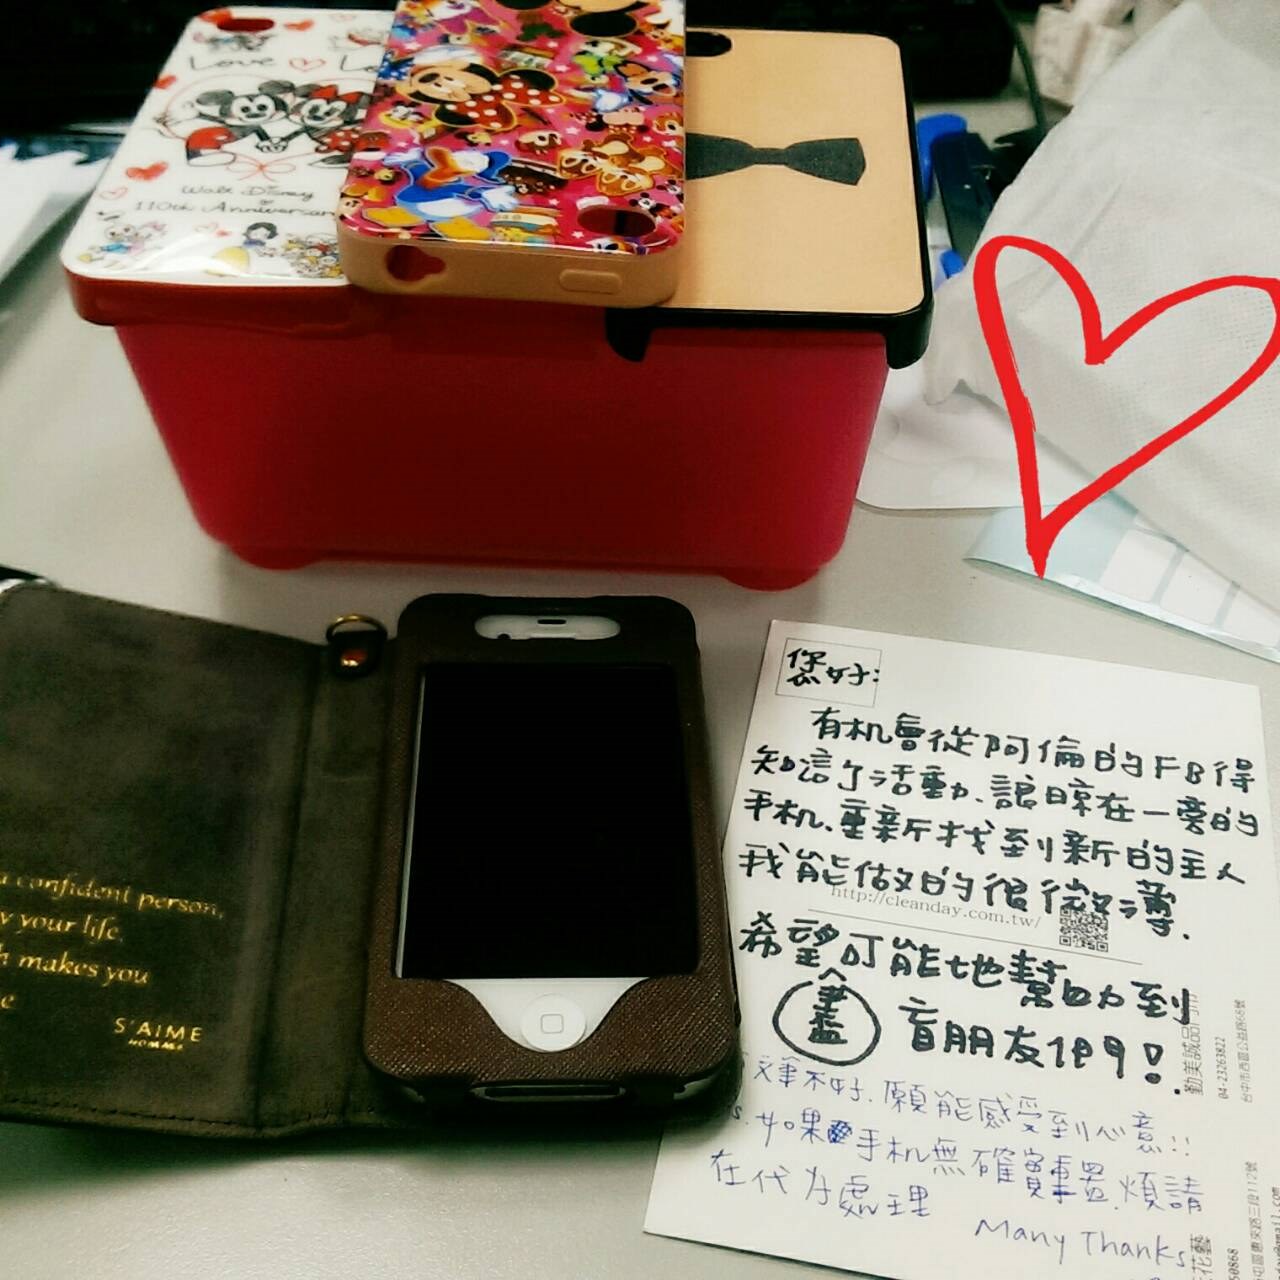 Love Lo
Walt Disney
110th Anniversar
a confident person,
y your life.
h makes you
e
S'AIME
HOMME
您好:
有机會從阿倫的FB得
知這个活動、讓晾在一旁的
手机、重新找到新的主人
我能做的很微薄.
http://cleanday.com.tw/
希望盡可能地幫助到
盲朋友們!.
文筆不好.願能感受到心意!!
S.如果手机無確實重置,煩請
在代为處理
Many Thanks
勤美誠品門市
04-23263822
台中市西區公益路68號
花藝
0868
屯區惠來路三段112號
@gmail.com